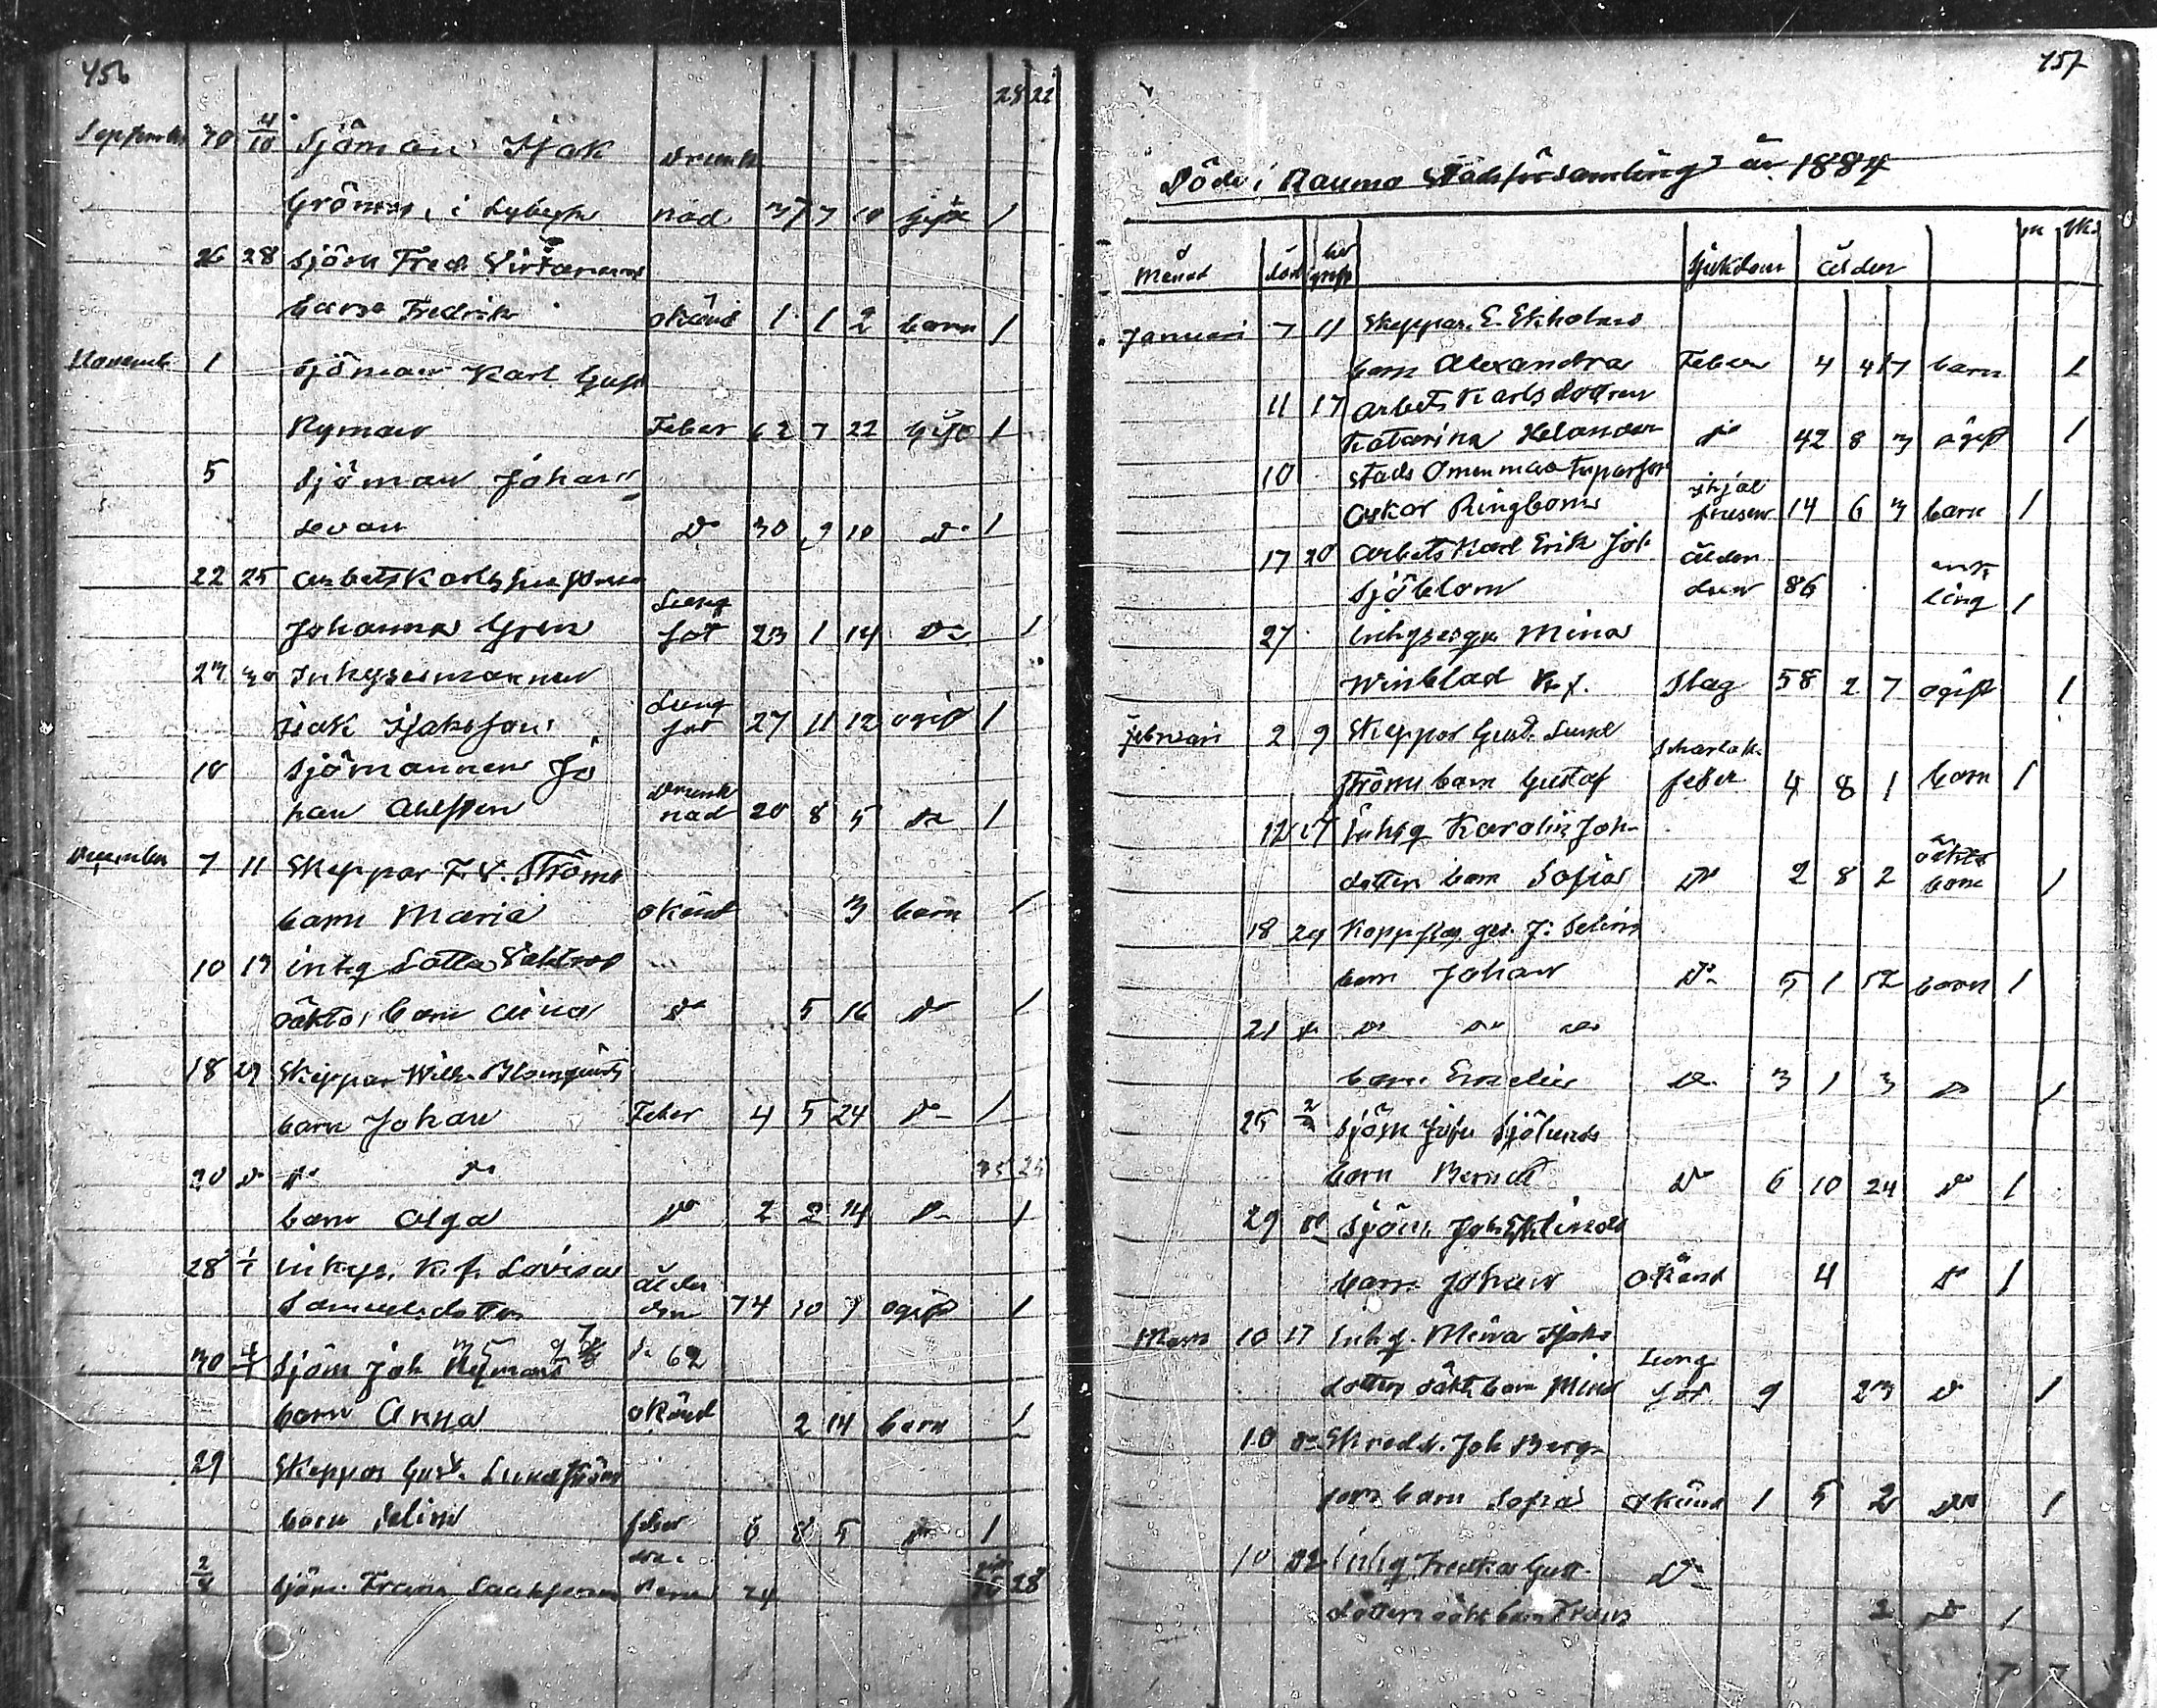 456
28 22
September 30 4/10 Sjöman Isak Drunk
Grönroos, i Lybeck nad 37 7 10 gift 1
26 28 Sjöm Fred. Virtanens
barn Fredrik okänd 1 1 2 barn 1
Novemb 1 Sjöman Karl Gust
Nyman Feber 62 7 22 Gift 1
5 Sjöman Johan
Levan Do 30 9 10 Do 1
22 25 arbetskarls hustru Lung
Johanna Gren sot 23 1 14 Do 1
27 30 Inhysesmannen Lung
Isak Isaksson sot 27 11 12 ogift 1
10 Sjömannen Jo Drunk
han Ahlsten nad 20 8 5 Do 1
December 7 11 Skeppar F. V. Ströms
barn Maria okänd 3 barn 1
10 13 inhy Lotta
oäkta barn Aina Do 5 16 Do 1
18 29 Skeppar Wilh. Blomqvists
barn Johan Feber 4 5 24 Do 1
20 Do Do Do 35 25
barn Olga Do 2 2 14 Do 1
28 1/1 inhys. K. f. Lovisa ålder
Samuelsdotter dom 74 10 7 ogift 1
30 4/1 Sjöm Joh Nymans 62
barn Anna okänd 2 14 barn 1
29 Skeppar Gust. Lundströms
barn Selim feber 6 8 5 Do 1
2/4 Sjöm. Frans 24 28
457
Döde i Raumo Stadsförsamling år 1884
Månad död begr Sjukdom ålder m qk.
Januari 7 11 Skeppar. E. Ekholms
barn Alexandra Feber 4 4 17 barn 1
11 17 arbets Karls dottren
Katarina Helander do 42 8 3 ogift 1
10 Stads ihjäl
Oskar Ringbom frusen 14 6 3 barn 1
17 20 arbets Karl Erik Joh. ålder enk
Sjöblom dom 86 ling 1
27 inhysesqv Mina
Winblad K. f. Slag 58 2 7 ogift 1
februari 2 9 Skeppar Gust. Lund Scharlak.
ströms barn Gustaf feber 4 8 1 barn 1
12 17 inhy Karolin Joh oäkta
dotters barn Sofia Do 2 8 2 barn 1
18 24 Kopparslag. ges. J: Selins
barn Johan Do 5 1 52 barn 1
21 Do Do Do Do
barn Emelie Do 3 1 3 Do 1
25 2/3 Sjöm Joh Sjölunds
barn Berndt Do 6 10 24 Do 1
29 Do Sjöm. Joh. Eklunds
barn Johan okänd 4 Do 1
Mars 10 17 inhy. Mina Isaks Lung
dotters oäkt. barn Mina sot 9 23 Do 1
10 Do Skredd. Joh Berg
barn Sofia okänd 1 5 2 Do 1
10 22 inhy Fredrika Gust Do
dotters oäkt barn Frans 2 Do 1
7 7